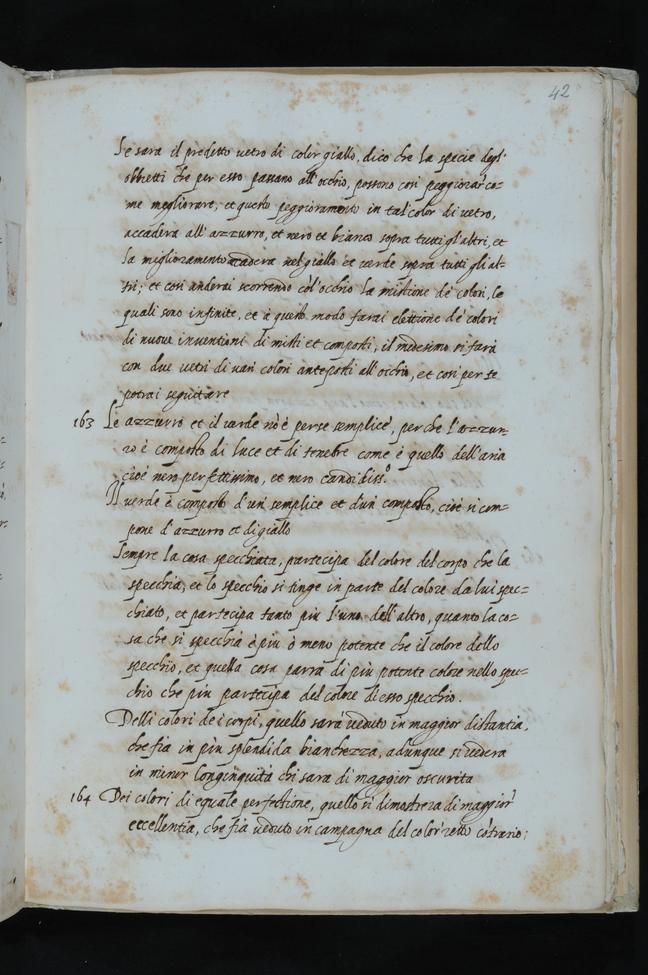 42
Se sara il predetto vetro di color giallo, dico che la specie degl'
obbietti che per esso passano all'occhio, possono cosi peggiorar co=
me megliorare, et questo peggioramento in tal' color di vetro,
accaderà all' azzurro, et nero et bianco sopra tutti gl'altri, et
la miglioramento accadera nel giallo et verde sopra tutti gli al=
tri; et cosi anderai scorrendo col'occhio la mistione de colori, le
quali sono infinite, et à questo modo farai elettione de colori
di nuove inventioni di misti et composti, il medesimo si farà
con due vetri di vari colori anteposti all'occhio, et cosi per te
potrai seguitare
163 Le azzurro et il verde nò è per se semplice, perche l'azzur=
ro è composto di luce et di tenebre come è quello dell'aria
cioè nero perfettissimo, et nero candidiss.o
Il verde è composto d'un' semplice et d'un composto, cioè si com=
pone d'azzurro et di giallo
Sempre la cosa specchiata, partecipa del colore del corpo che la
specchia, et lo specchio si tinge in parte del colore da lui spec=
chiato, et partecipa tanto più l'uno dell'altro, quanto la co=
sa che si specchia è più ò meno potente che il colore dello
specchio, et quella cosa parrà di più potente colore nello spec=
chio che più partecipa del colore di esso specchio.
Delli colori de i corpi, quello sarà veduto in maggior distantia,
che fia in più splendida bianchezza, adunque si vedera
in minor longinquità chi sara di maggior oscurita
164 Dei colori di eguale perfettione, quello si dimostrera di maggior'
eccellentia, che fia veduto in campagna del color' retto cõtrario;